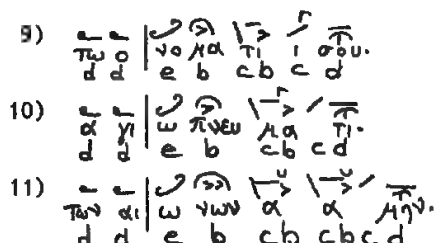 9) πω ο | νο μα τι ι σου.
d d e b cb c d
10) α γι | ω πνευ μα τι.
d d e b cb c d
11) των αι | ω νων α α μην.
d d e b cb cb c d